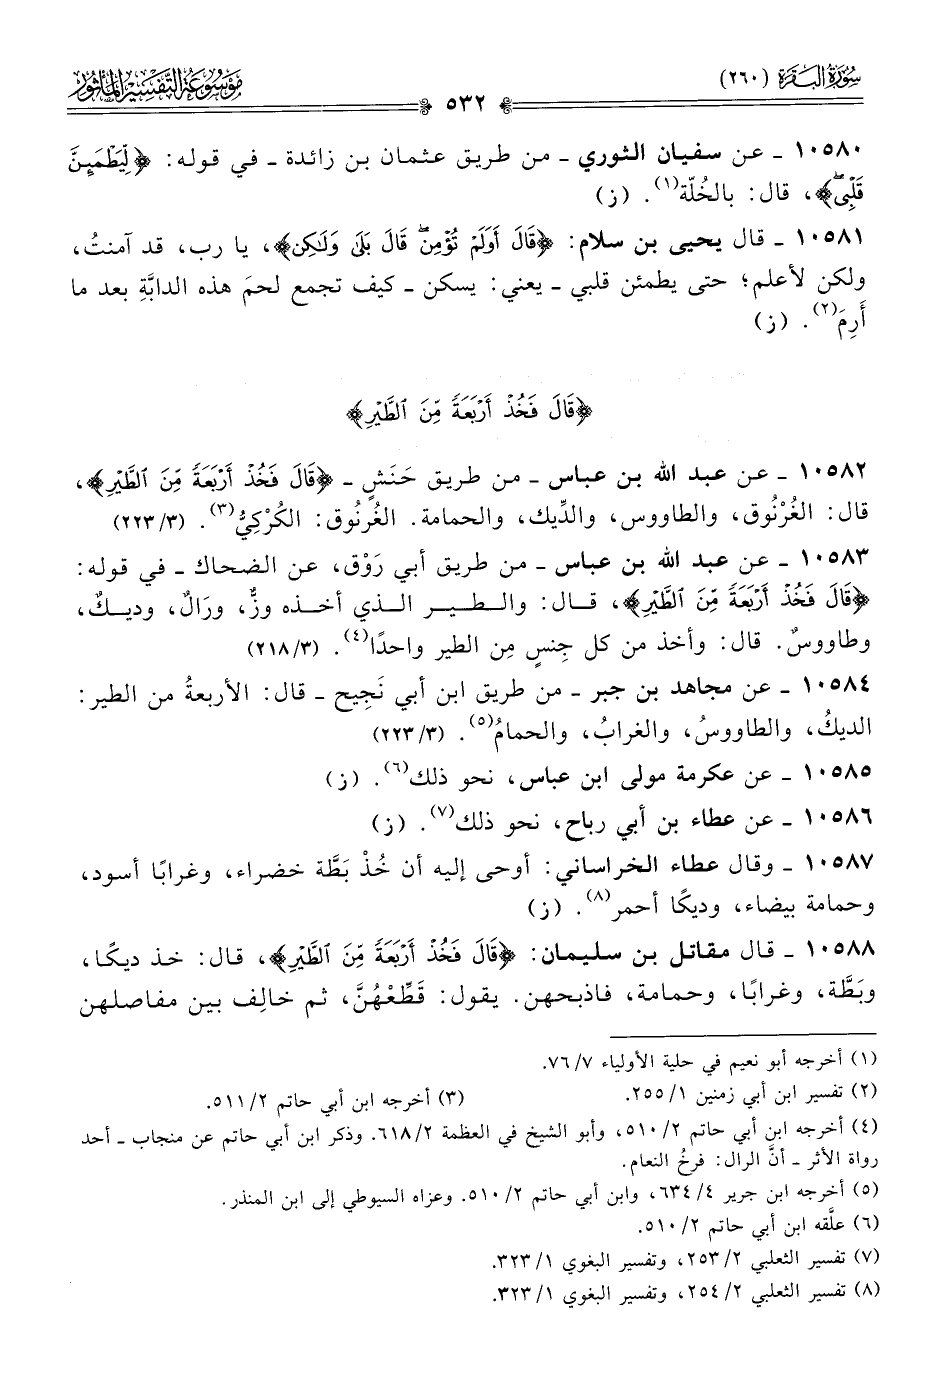 سُورَةُ البَقَرَة (٢٦٠)
٥٣٢
مَوْسُوعَةُ التَّفْسِيرِ المَأْثُور
١٠٥٨٠ ـ عن سفيان الثوري ـ من طريق عثمان بن زائدة ـ في قوله: ﴿لِّيَطْمَئِنَّ
قَلْبِىۖ﴾، قال: بالخُلّة(١). (ز)
١٠٥٨١ ـ قال يحيى بن سلام: ﴿قَالَ أَوَلَمْ تُؤْمِنۖ قَالَ بَلَىٰ وَلَٰكِن﴾، يا رب، قد آمنتُ،
ولكن لأعلم؛ حتى يطمئن قلبي ـ يعني: يسكن ـ كيف تجمع لحمَ هذه الدابَّةِ بعد ما
أَرِمَ(٢). (ز)
﴿قَالَ فَخُذْ أَرْبَعَةً مِّنَ ٱلطَّيْرِ﴾
١٠٥٨٢ ـ عن عبد الله بن عباس ـ من طريق حَنَشٍ ـ ﴿قَالَ فَخُذْ أَرْبَعَةً مِّنَ ٱلطَّيْرِ﴾،
قال: الغُرْنُوق، والطاووس، والدِّيك، والحمامة. الغُرنُوق: الكُرْكِيُّ(٣). (٢٢٣/٣)
١٠٥٨٣ ـ عن عبد الله بن عباس ـ من طريق أبي رَوْق، عن الضحاك ـ في قوله:
﴿قَالَ فَخُذْ أَرْبَعَةً مِّنَ ٱلطَّيْرِ﴾، قال: والطير الذي أخذه وزٌّ، ورَالٌ، وديكٌ،
وطاووسٌ. قال: وأخذ من كل جِنسٍ مِن الطير واحدًا(٤). (٢١٨/٣)
١٠٥٨٤ ـ عن مجاهد بن جبر ـ من طريق ابن أبي نَجِيح ـ قال: الأربعةُ من الطير:
الديكُ، والطاووسُ، والغرابُ، والحمامُ(٥). (٢٢٣/٣)
١٠٥٨٥ ـ عن عكرمة مولى ابن عباس، نحو ذلك(٦). (ز)
١٠٥٨٦ ـ عن عطاء بن أبي رباح، نحو ذلك(٧). (ز)
١٠٥٨٧ ـ وقال عطاء الخراساني: أوحى إليه أن خُذْ بَطَّة خضراء، وغرابًا أسود،
وحمامة بيضاء، وديكًا أحمر(٨). (ز)
١٠٥٨٨ ـ قال مقاتل بن سليمان: ﴿قَالَ فَخُذْ أَرْبَعَةً مِّنَ ٱلطَّيْرِ﴾، قال: خذ ديكًا،
وبَطَّة، وغرابًا، وحمامة، فاذبحهن. يقول: قَطِّعْهُنَّ، ثم خالِف بين مفاصلهن
(١) أخرجه أبو نعيم في حلية الأولياء ٧/ ٧٦.
(٢) تفسير ابن أبي زمنين ١/ ٢٥٥.
(٣) أخرجه ابن أبي حاتم ٢/ ٥١١.
(٤) أخرجه ابن أبي حاتم ٢/ ٥١٠، وأبو الشيخ في العظمة ٢/ ٦١٨. وذكر ابن أبي حاتم عن منجاب ـ أحد
رواة الأثر ـ أنَّ الرال: فرخُ النعام.
(٥) أخرجه ابن جرير ٤/ ٦٣٤، وابن أبي حاتم ٢/ ٥١٠. وعزاه السيوطي إلى ابن المنذر.
(٦) علَّقه ابن أبي حاتم ٢/ ٥١٠.
(٧) تفسير الثعلبي ٢/ ٢٥٣، وتفسير البغوي ١/ ٣٢٣.
(٨) تفسير الثعلبي ٢/ ٢٥٤، وتفسير البغوي ١/ ٣٢٣.